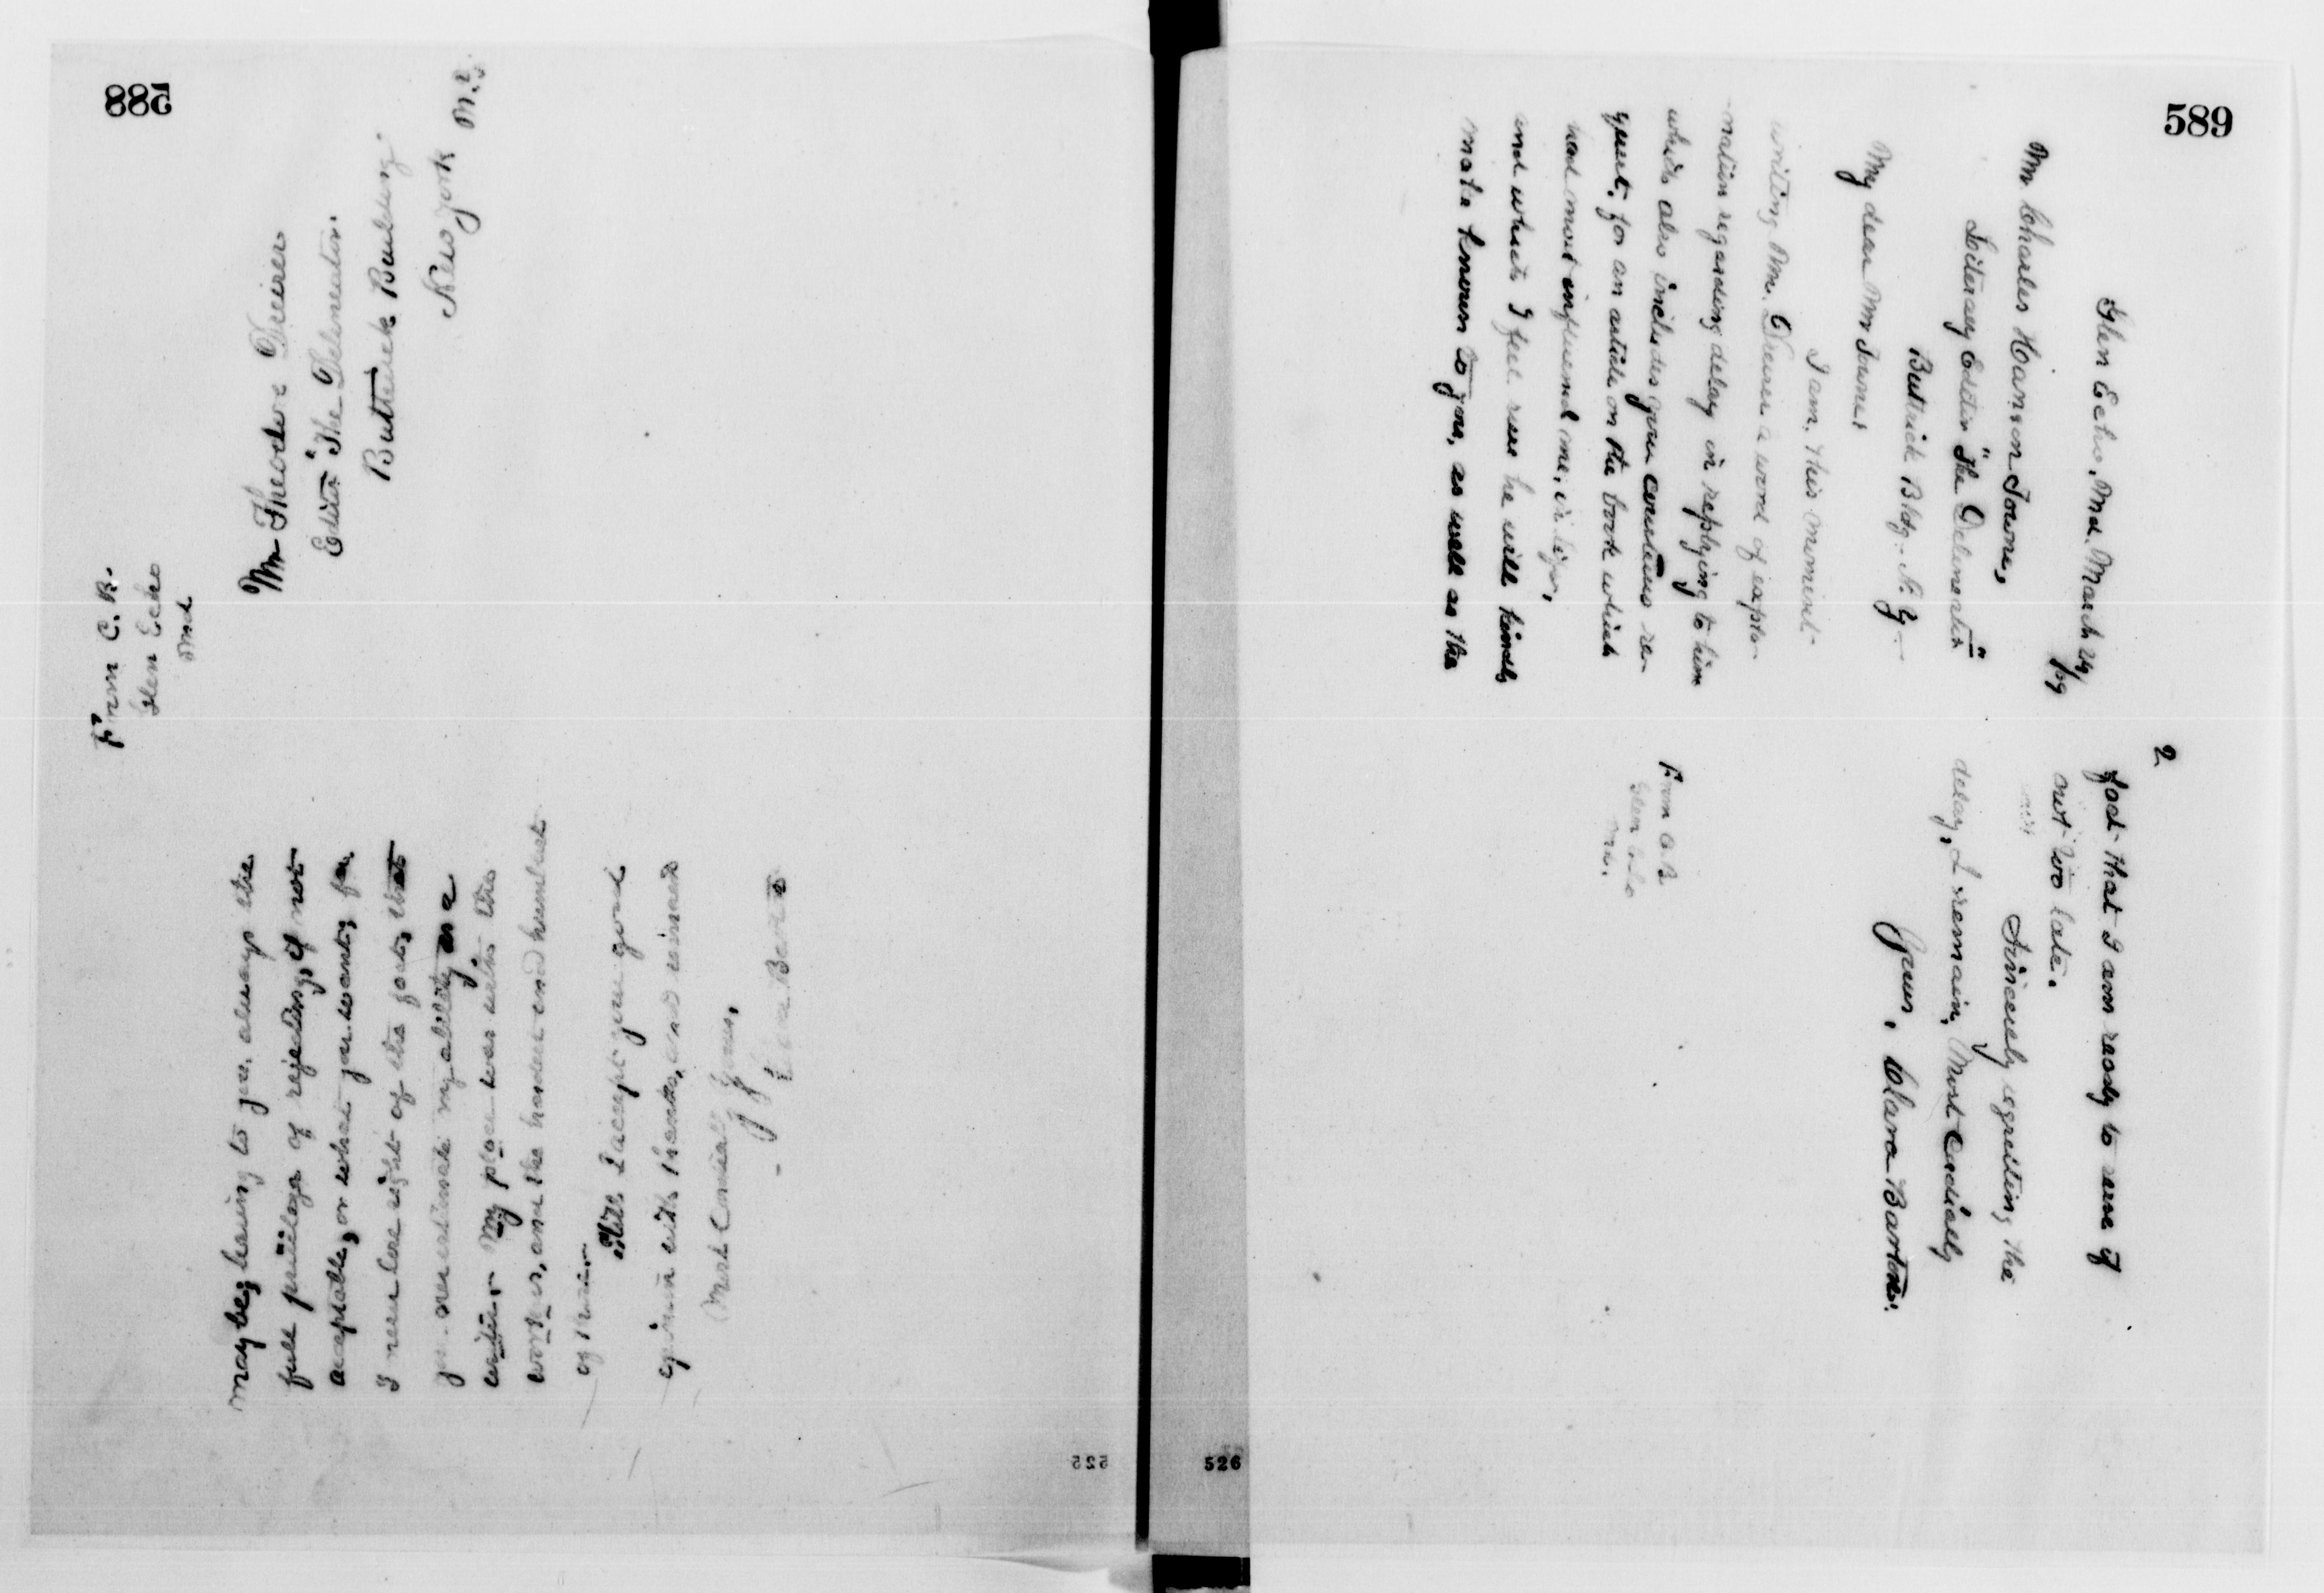 588
may be; leaving to you, always the
full privilege of rejecting, if not
acceptable, or what you want; for
I never lose sight of the fact, that
you overestimate my ability as a
writer. My place was with the
workers, and the hardest and humblest
of
Still I accept your good
opinion with thanks, and remain
Most Cordially Yours,
Clara Barton
From C. B.
Glen Echo
Md
Mr Theodore Dreiser
Editor "The Delineator.
Butterick Building
New York
525
589
Glen Echo, Md. March 29/09
Mr Charles Hanson Towne,
Literary Editor "The Delineator"
Buttrick Bldg. N. Y—
My dear Mr Towne;
I am, this moment
writing Mr. Dreiser a word of expla-
nation regarding delay in replying to him
which also includes your courteous re-
quest, for an article on the book which
had most influenced me, in life,
and which I feel sure he will kindly
make known to you, as well as the
2
fact that I am ready to serve if
not too late.
Sincerely regretting the
delay, I remain, Most Cordially
Yours, Clara Barton.
From C. B
Glen Echo
Md.
526